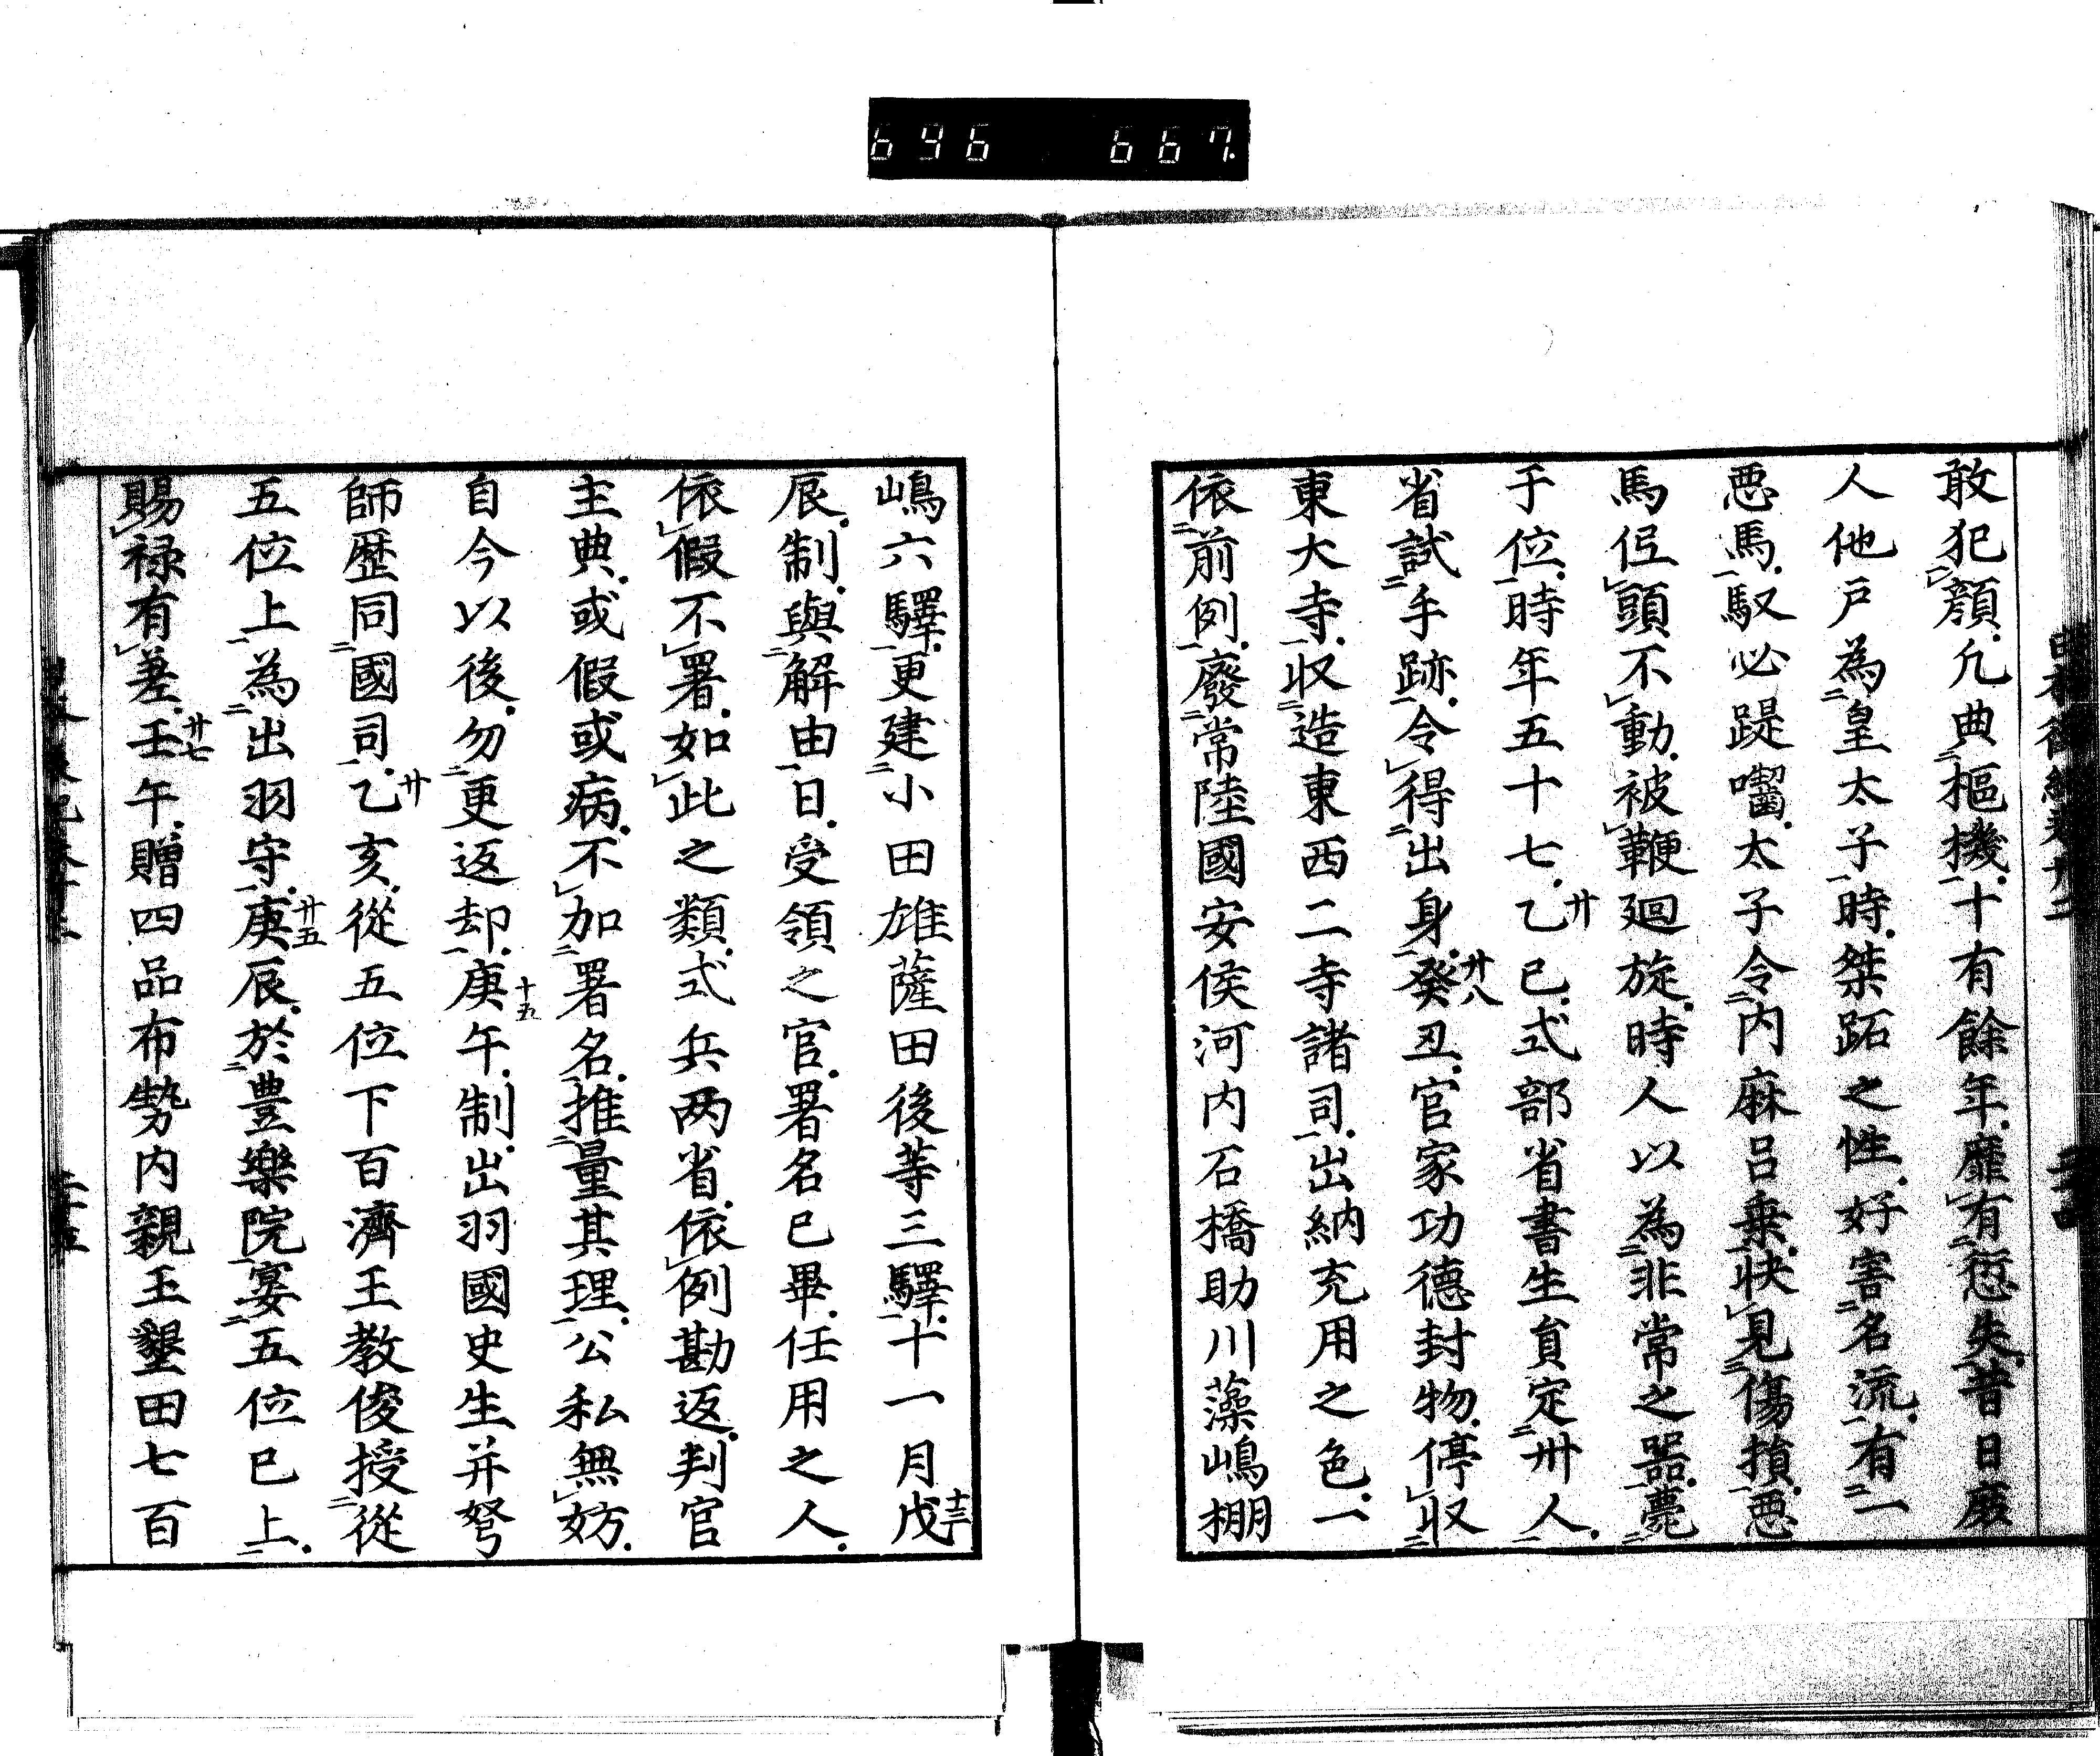 696 667.
敢犯顔凢典樞機十有餘年靡有愆失昔日廢
人他戸為皇太子時桀跖之性好害名流有一
悪馬馭必踶囓太子令内麻呂乗状見傷損悪
馬低頭不動被鞭廻旋時人以為非常之器薨
于位時年五十七乙巳式部省書生貟定卅人
廿
省試手跡令得出身癸丑官家功德封物停収
廿八
東大寺収造東西二寺諸司出納充用之色一
依前例廢常陸國安侯河内石橋助川藻嶋棚
嶋六驛更建小田雄薩田後等三驛十一月戊
十三
辰制與解由日受領之官署名已畢任用之人
依假不署如此之類式兵两省依例勘返判官
主典或假或病不加署名推量其理公私無妨
自今以後勿更返却庚午制出羽國史生并弩
十五
師歷同國司乙亥從五位下百濟王教俊授從
廿
五位上為出羽守庚辰於豊樂院宴五位已上
廿五
賜禄有差壬午贈四品布勢内親王墾田七百
廿七